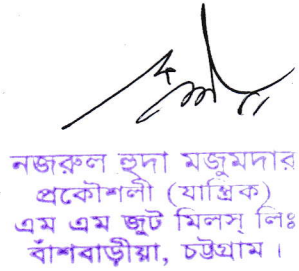 নজরুল হুদা মজুমদার
প্রকৌশলী (যান্ত্রিক)
এম এম জুট মিলস্ লিঃ
বাঁশবাড়ীয়া, চট্টগ্রাম ।